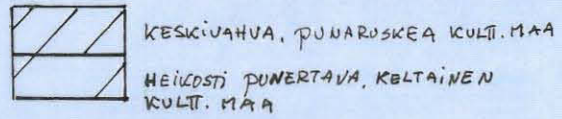 KESKIVAHVA, PUNARUSKEA KULTT. MAA
HEIKOSTI PUNERTAVA, KELTAINEN
KULTT. MAA